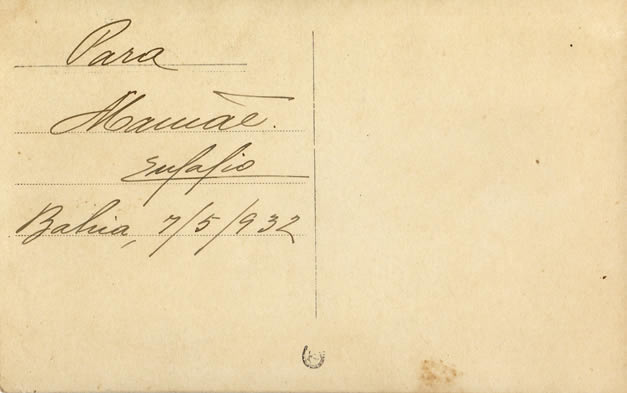 Para
Mamãe.
Bahia, 7/5/932